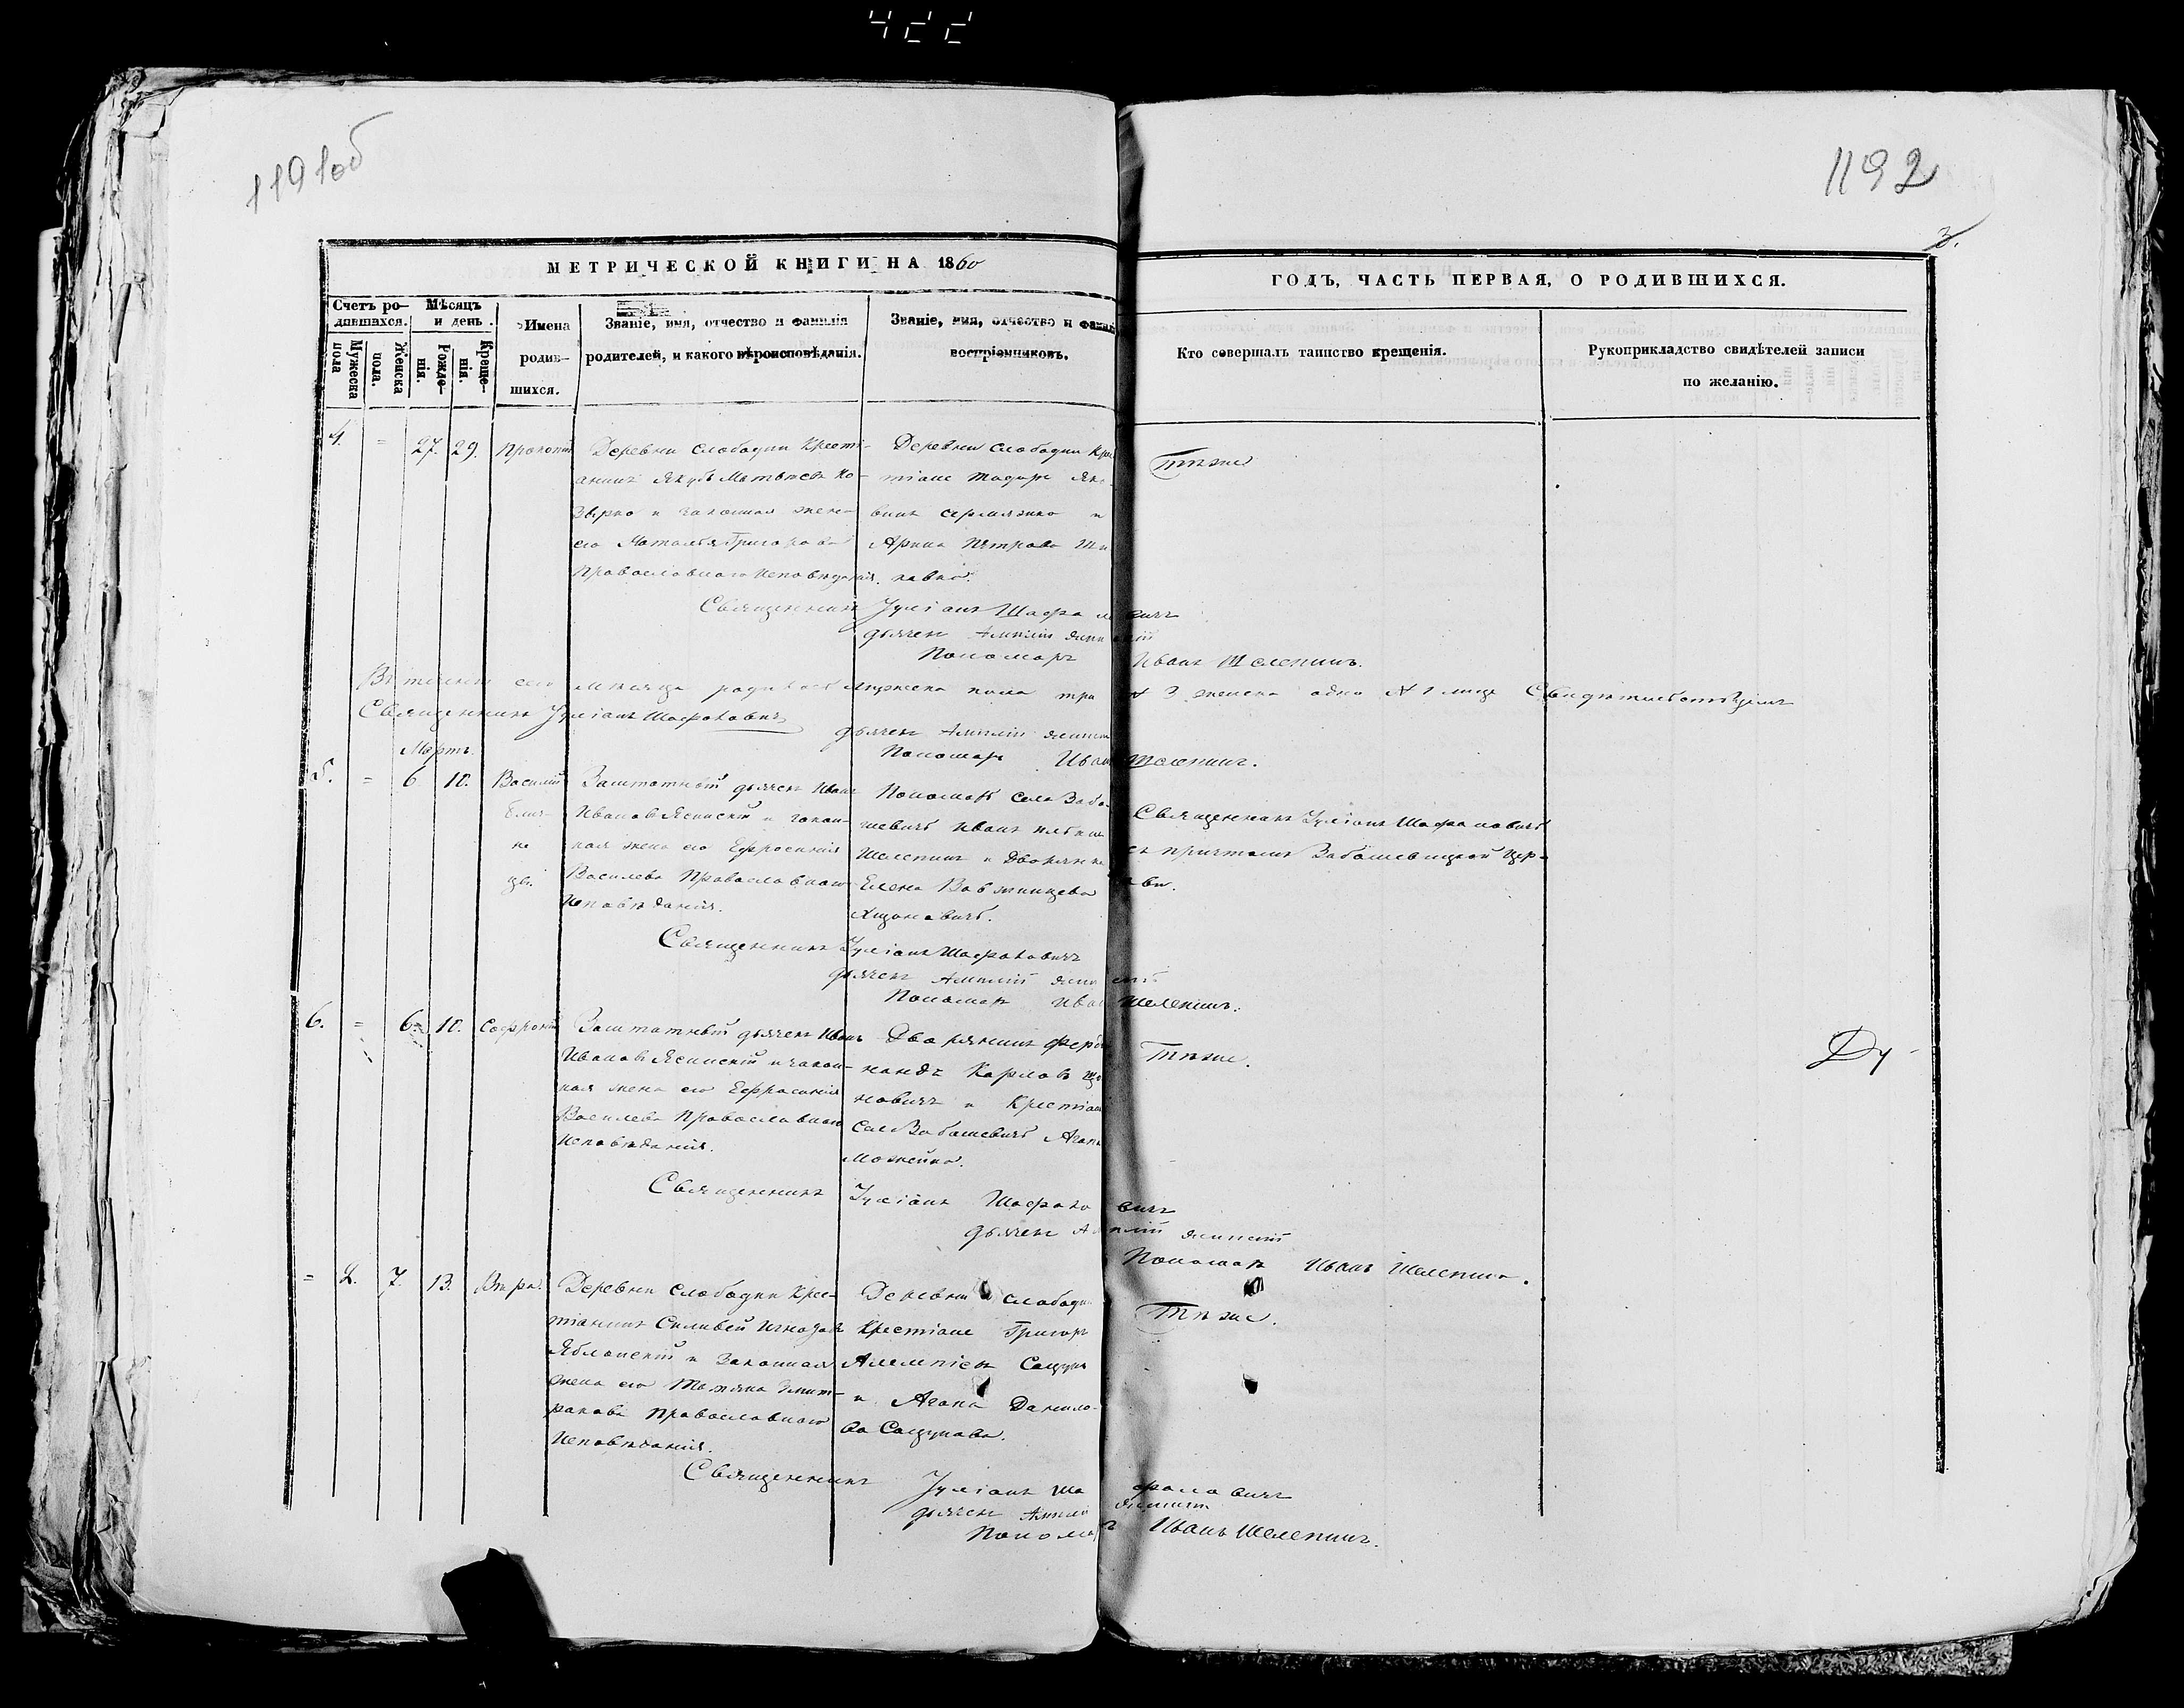 422
1191об
1192
3.
МЕТРИЧЕСКОЙ КНИГИ НА 1860
ГОДЪ, ЧАСТЬ ПЕРВАЯ, О РОДИВШИХСЯ.
Счетъ ро-
дившихся.
Мужеска
пола
Женска
пола.
Мѣсяцъ
и день.
Рожде-
нія.
Креще-
нія.
Имена
родив-
шихся.
Званіе, имя, отчество и фамилія
родителей, и какого вѣроисповѣданія.
Званіе, имя, отчество и фамил
воспріемниковъ.
Кто совершалъ таинство крещенія.
Рукоприкладство свидѣтелей записи
по желанію.
4. = 27. 29. Прокопій
Деревни Слободки Кресті-
анинъ Якубъ Матвѣевъ Ко-
зырко и законная жена
его Наталья Григорова
Православнаго Исповѣданія.
Деревни Слободки Кре
тіане Тодоръ Яко
вивъ и
Арина Петрова
Тѣже
Священникъ Іуліанъ Шафрановичъ
дьячекъ
Пономарь Иванъ Шелепинъ.
Въ теченіи сего мѣсяца родилось Мужеска пола три № 3 женска одно № 1 лице Свидѣтельствуемъ
Священникъ Іуліанъ Шафрановичъ
дьячекъ
Пономарь Иванъ Шелепинъ.
Мартъ.
5. = 6 10. Василій
Близ-
не
цы.
Заштатный дьячекъ Иванъ
Ивановъ Ясинскій и закон-
ная жена его Ефросинія
Василева Православнаго
Исповѣданія.
Пономарь села Забо-
шевичъ Иванъ
Шелепинъ и Дворянка
Елена
Священникъ Іуліанъ Шафрановичъ
съ причтомъ Забошевицкой Цер-
кви.
Священникъ Іуліанъ Шафрановичъ
дьячекъ
Пономарь Иванъ Шелепинъ.
6. = 6 10. Софроній
Заштатный дьячекъ Иванъ
Ивановъ Ясинскій и закон-
ная жена его Ефросинія
Василева Православнаго
Исповѣданія.
Дворянинъ Ферди
нандъ Карловъ
новичъ и Крестіан
села Забошевичъ Агапа
Можейко.
Тѣже.
Ду
Священникъ Іуліанъ Шафрановичъ
дьячекъ
Пономарь Иванъ Шелепинъ.
= 2. 7. 13. Вѣра.
Деревни Слободки Крес-
тіанинъ Силивей Игнатовъ
Яблонскій и Законная
жена его Татяна Дмит-
ракова Православнаго
Исповѣданія.
Деревни Слободки
Крестіане Григоръ
Алемпіевъ Сацукъ
и Агапа Данило-
ва Сацукова.
Тѣже.
Священникъ Іуліанъ Шафрановичъ
дьячекъ
Пономарь Иванъ Шелепинъ.